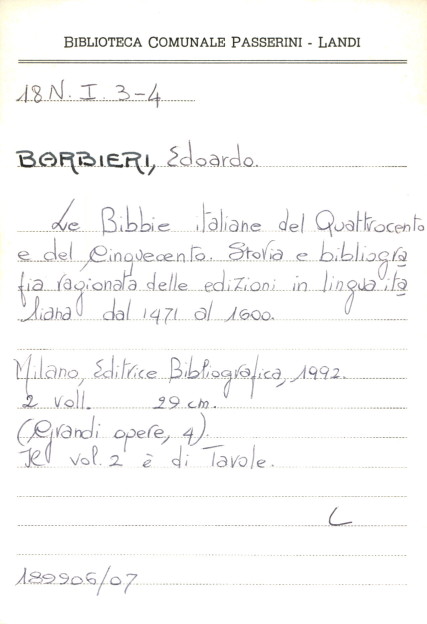 BIBLIOTECA COMUNALE PASSERINI - LANDI
18 N. I. 3-4
BARBIERI, Edoardo.
Le Bibbie italiane del Quattrocento
e del Cinquecento. Storia e bibliogra
fia ragionata delle edizioni in lingua ita
liana dal 1471 al 1600.
Milano, Editrice Bibliografica, 1992.
2 voll. 29 cm.
(Grandi opere, 4).
Il vol. 2 è di Tavole.
C
189906/07